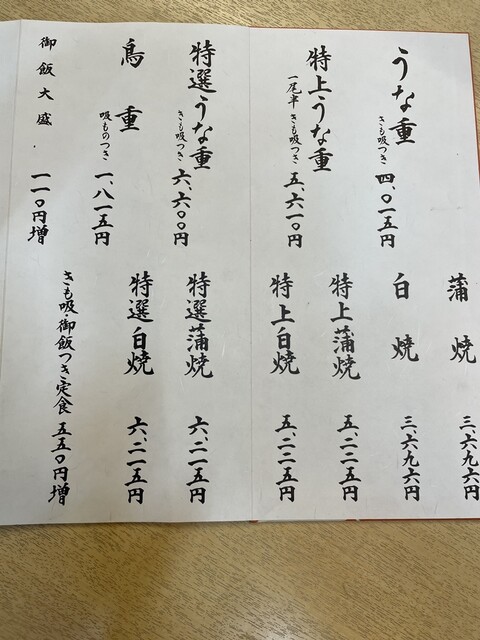 うな重 きも吸つき 四、〇一五円
特上うな重 一尾半 きも吸つき 五、六一〇円
特選うな重 きも吸つき 六、六〇〇円
鳥重 吸ものつき 一、八一五円
御飯大盛 一一〇円増
蒲焼 三、六九六円
白焼 三、六九六円
特上蒲焼 五、二二五円
特上白焼 五、二二五円
特選蒲焼 六、二一五円
特選白焼 六、二一五円
きも吸・御飯つき定食 五五〇円増